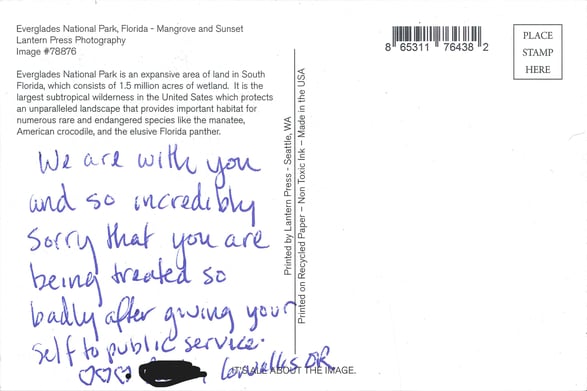 Everglades National Park, Florida - Mangrove and Sunset
Lantern Press Photography
Image #78876
Everglades National Park is an expansive area of land in South
Florida, which consists of 1.5 million acres of wetland. It is the
largest subtropical wilderness in the United Sates which protects
an unparalleled landscape that provides important habitat for
numerous rare and endangered species like the manatee,
American crocodile, and the elusive Florida panther.
We are with you
and so incredibly
sorry that you are
being treated so
badly after giving your
self to public service.
♡♡♡ Corvallis OR
IT'S ALL ABOUT THE IMAGE.
Printed by Lantern Press - Seattle, WA
Printed on Recycled Paper – Non Toxic Ink – Made in the USA
8 65311 76438 2
PLACE
STAMP
HERE